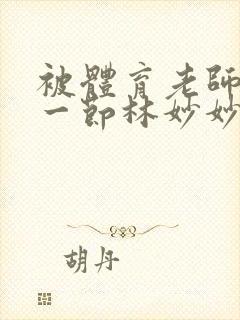 被體育老師
一節林妙妙
胡丹